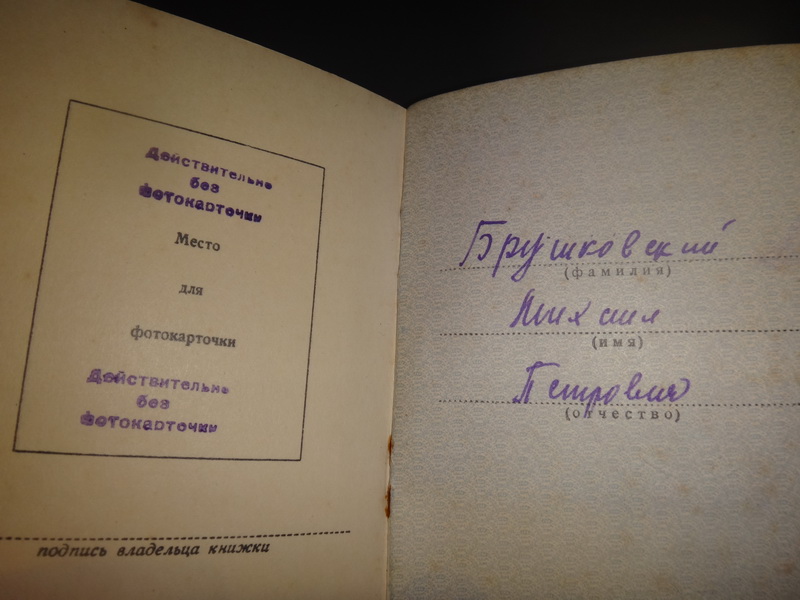 Действительно
без
фотокарточки
Место
для
фотокарточки
Действительно
без
фотокарточки
подпись владельца книжки
Брушковский
(фамилия)
Михаил
(имя)
Петрович
(отчество)